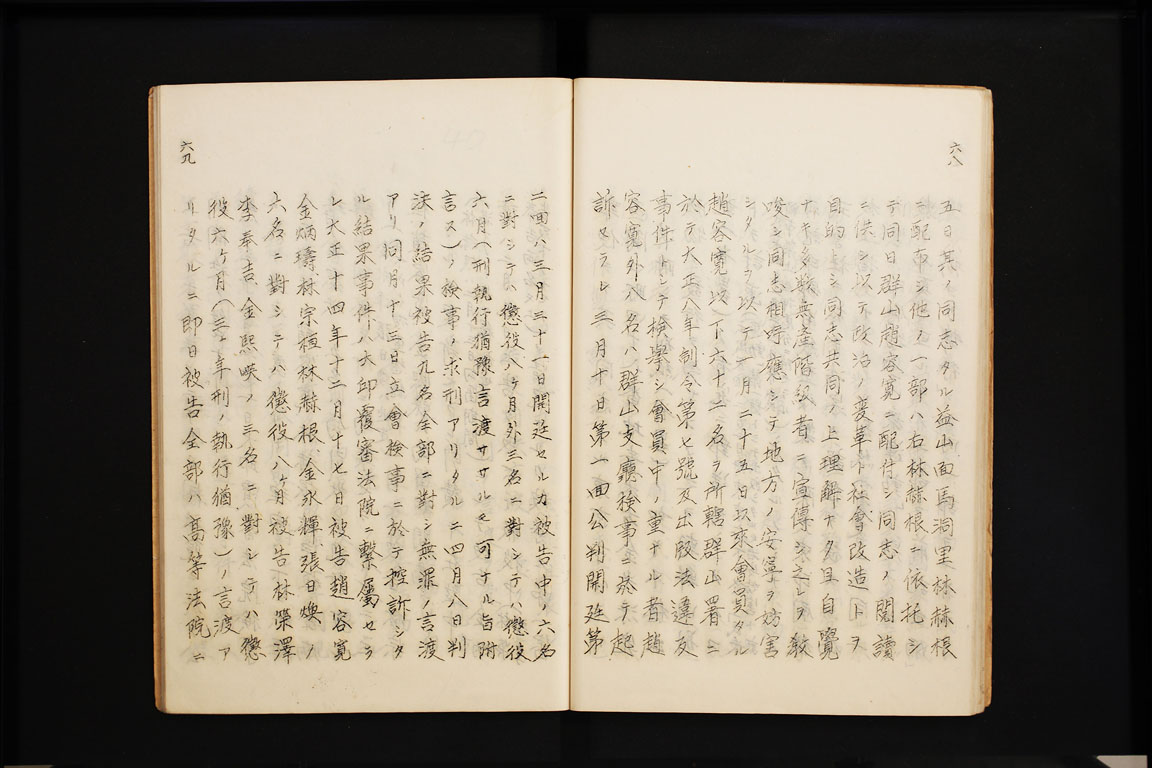 六八
五日其ノ同志タル益山面馬洞里林赫根
ニ配布シ他ノ一部ハ右林赫根ニ依托シ
テ同日群山趙容寛ニ配付シ同志ノ閲讀
ニ供シ以テ政治ノ変革ト社會改造トヲ
目的トシ同志共同ノ上理解ナク且自覺
ナキ多数無産階級者ニ宣傳シ之レヲ敎
唆シ同志相呼應シテ地方ノ安寧ヲ妨害
シタルヲ以テ一月二十五日以來會員タル
趙容寛以下六十二名ヲ所轄群山署ニ
於テ大正八年制令第七號及出版法違反
事件トシテ検擧シ會員中ノ重ナル者趙
容寛外八名ハ群山支廳検事ニ於テ起
訴セラレ三月十日第一回公判開廷第
六九
二回ハ三月三十一日開廷セルカ被告中ノ六名
ニ對シテハ懲役八ヶ月外三名ニ對シテハ懲役
六月(刑執行猶豫言渡サルモ可ナル旨附
言ス)ノ検事ノ求刑アリタルニ四月八日判
決ノ結果被告九名全部ニ對シ無罪ノ言渡
アリ同月十三日立會検事ニ於テ控訴シタ
ル結果事件ハ大邱覆審法院ニ繋屬セラ
レ大正十四年十二月十七日被告趙容寛
金炳璹林宗桓林赫根、金永輝張日煥ノ
六名ニ對シテハ懲役八ヶ月被告林榮澤
李奉吉、金熙暎ノ三名ニ對シテハ懲
役六ヶ月(三ヶ年刑ノ執行猶豫)ノ言渡ア
リタルニ即日被告全部ハ高等法院ニ